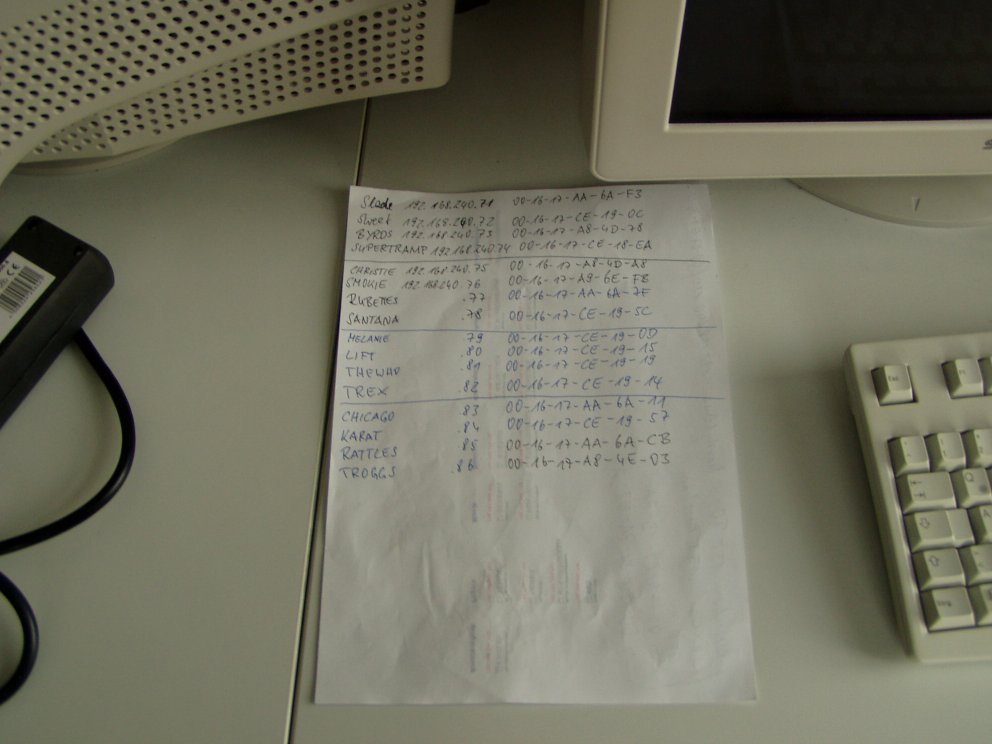 Slade 192.168.240.71 00-16-17-AA-6A-F3
Sweet 192.168.240.72 00-16-17-CE-19-0C
BYRDS 192.168.240.73 00-16-17-A8-4D-78
SUPERTRAMP 192.168.240.74 00-16-17-CE-18-EA
CHRISTIE 192.168.240.75 00-16-17-A8-4D-A8
SMOKIE 192.168.240.76 00-16-17-A9-6E-FB
RUBETTES .77 00-16-17-AA-6A-7F
SANTANA .78 00-16-17-CE-19-5C
MELANIE .79 00-16-17-CE-19-0D
LIFT .80 00-16-17-CE-19-15
THEWHO .81 00-16-17-CE-19-19
TREX .82 00-16-17-CE-19-14
CHICAGO .83 00-16-17-AA-6A-11
KARAT .84 00-16-17-CE-19-57
RATTLES .85 00-16-17-AA-6A-CB
TROGGS .86 00-16-17-A8-4E-03